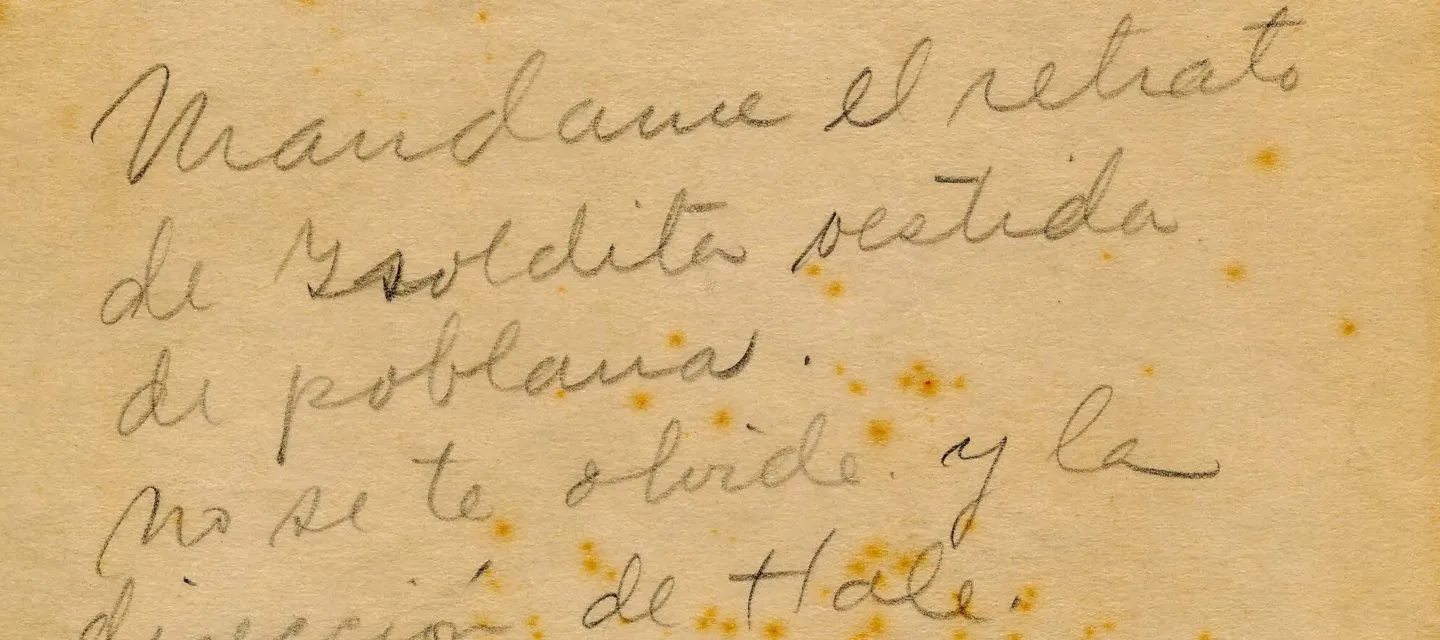 Mandame el retrato
de Ysoldita vestida
de poblana.
no se te olvide. y la
dirección de Hale.